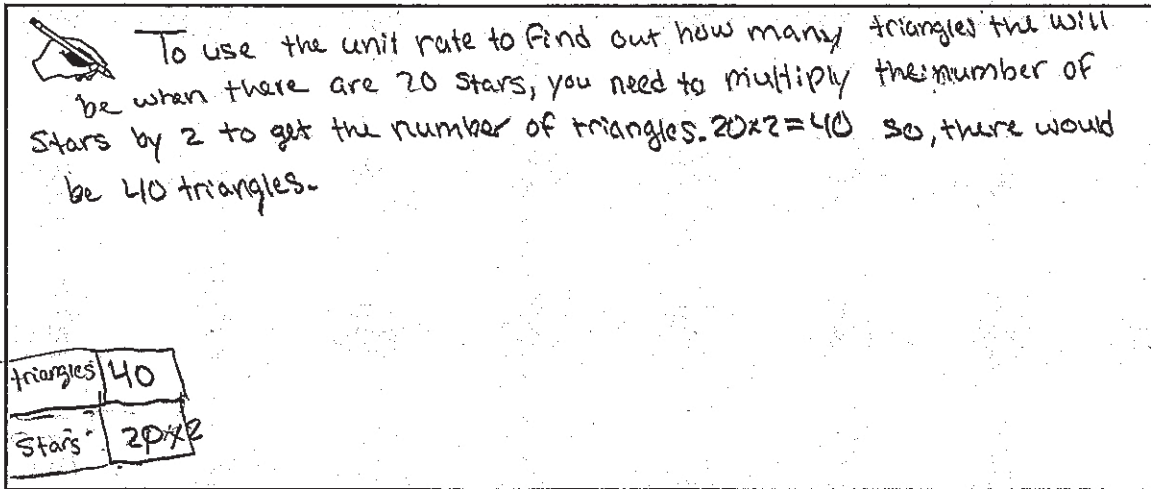 To use the unit rate to find out how many triangles the will
be when there are 20 stars, you need to multiply the number of
Stars by 2 to get the number of triangles. 20x2=40 so, there would
be 40 triangles.
triangles 40
Stars 20x2